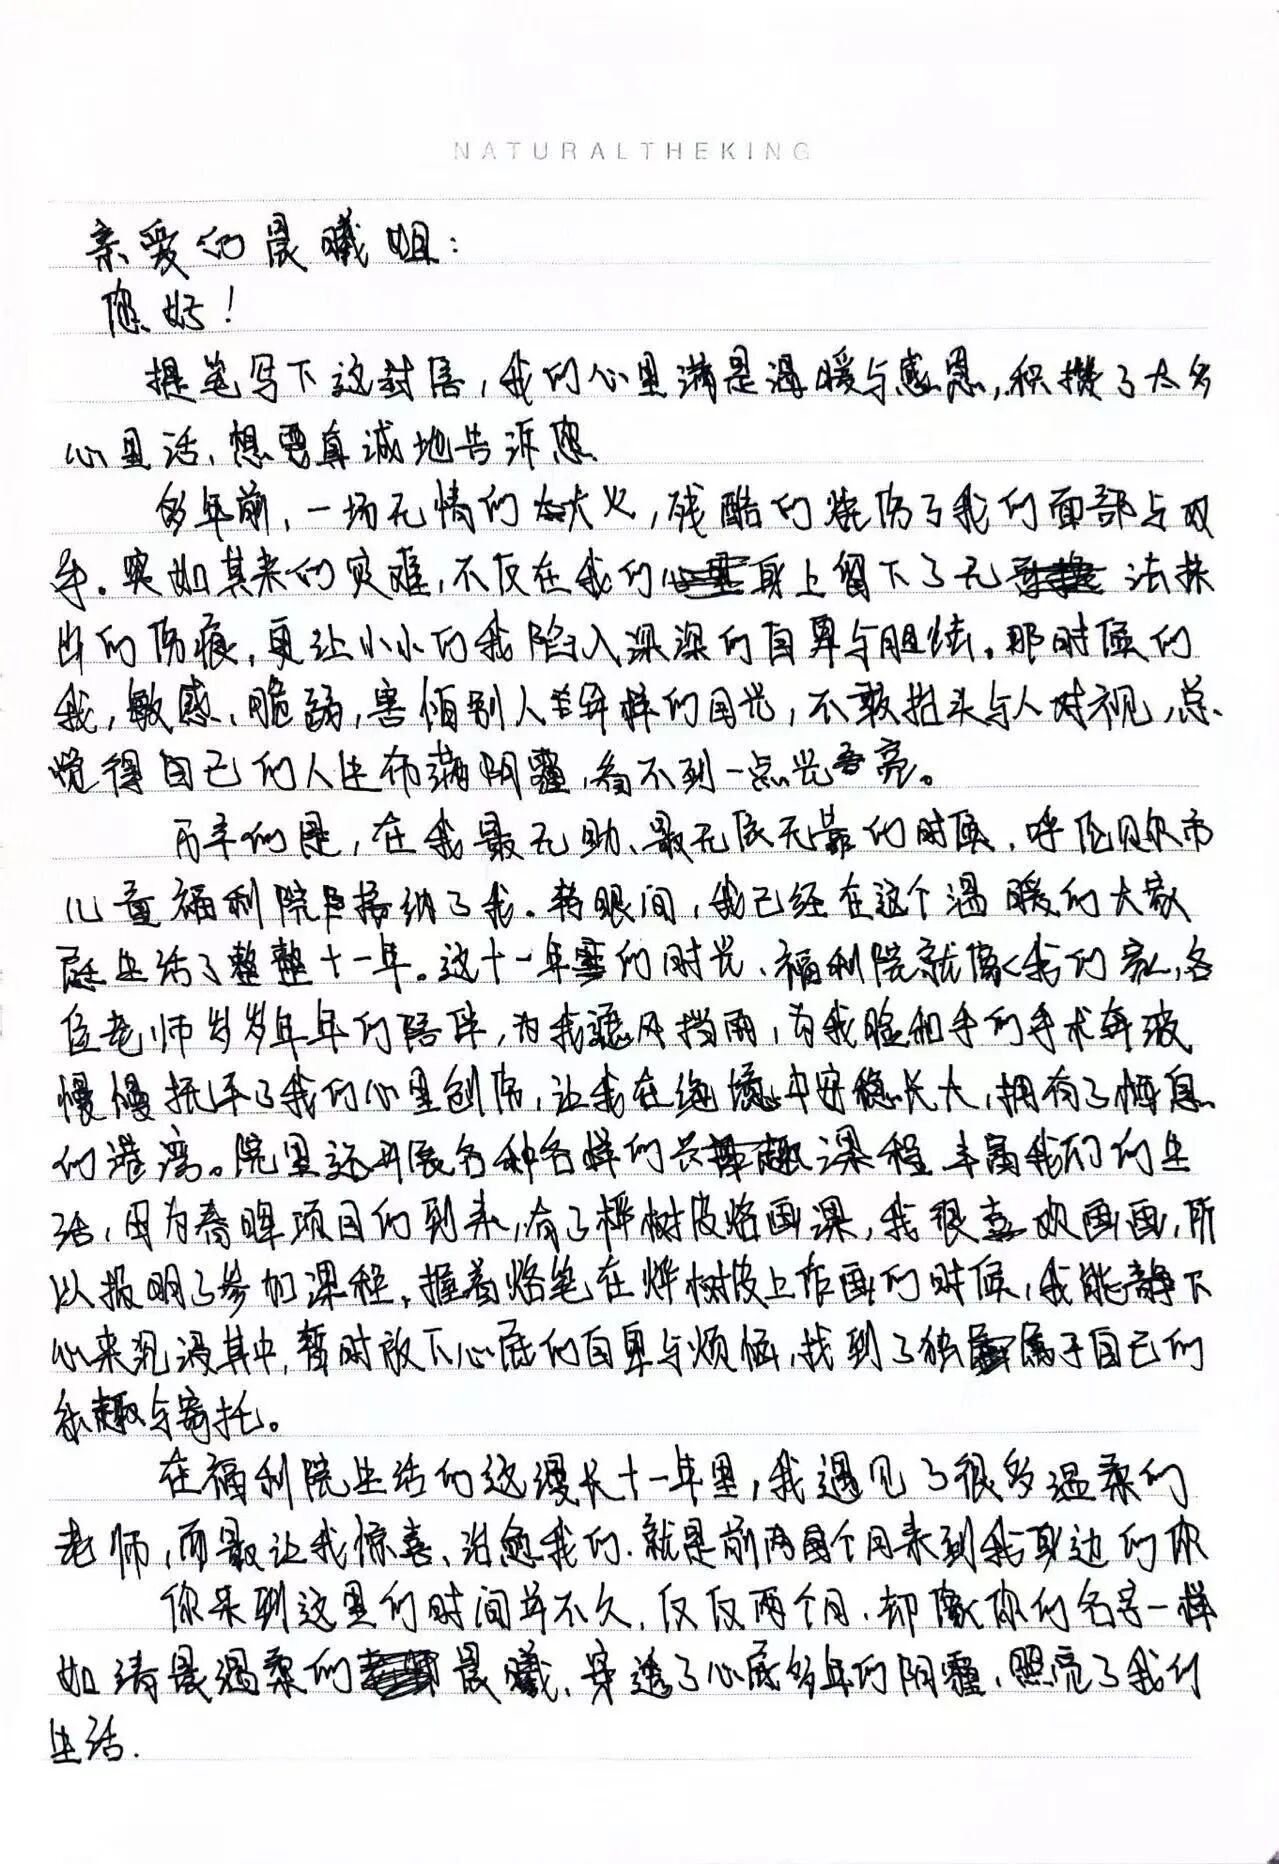 NATURALTHEKING
亲爱的晨曦姐:
您好!
提笔写下这封信,我的心里满是温暖与感恩,积攒了太多
心里话,想要真诚地告诉您
多年前,一场无情的大火,残酷的烧伤了我的面部与双
手。突如其来的灾难,不仅在我的身上留下了无法抹
出的伤痕,更让小小的我陷入深深的自卑与胆怯。那时候的
我,敏感、脆弱,害怕别人异样的目光,不敢抬头与人对视,总
觉得自己的人生布满阴霾,看不到一点光亮。
万幸的是,在我最无助、最无依无靠的时候,呼伦贝尔市
儿童福利院接纳了我。转眼间,我已经在这个温暖的大家
庭生活了整整十一年。这十一年里的时光,福利院就像我的家,各
位老师岁岁年年的陪伴,为我遮风挡雨,为我脸和手的手术奔波
慢慢抚平了我的心里创伤,让我在绝境中安稳长大,拥有了栖息
的港湾。院里还开展各种各样的兴趣课程丰富我们的生
活,因为春晖项目的到来,有了桦树皮烙画课,我很喜欢画画,所
以报明了参加课程,握着烙笔在桦树皮上作画的时候,我能静下
心来沉浸其中,暂时放下心底的自卑与烦恼,找到了独属于自己的
乐趣与寄托。
在福利院生活的这漫长十一年里,我遇见了很多温柔的
老师,而最让我惊喜、治愈我的,就是前两个月来到我身边的你
你来到这里的时间并不久,仅仅两个月,却像你的名字一样
如清晨温柔的晨曦,穿透了心底多年的阴霾,照亮了我的
生活.